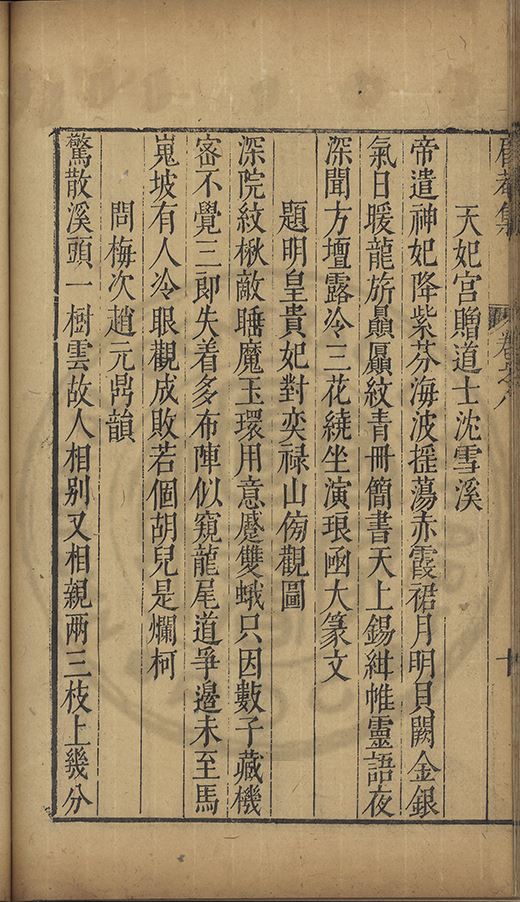 天妃宮贈道士沈雪溪
帝遣神妃降紫芬海波摇蕩赤霞裙月明貝闕金銀
氣日暖龍旂贔屭紋青冊簡書天上錫紺帷靈語夜
深聞方壇露冷三花繞坐演琅函大篆文
題明皇貴妃對奕禄山傍觀圖
深院紋楸敵睡魔玉環用意蹙雙蛾只因數子藏機
密不覺三郎失着多布陣似窺龍尾道爭邊未至馬
嵬坡有人冷眼觀成敗若個胡兒是爛柯
問梅次趙元鼎韻
驚散溪頭一樹雲故人相别又相親兩三枝上幾分